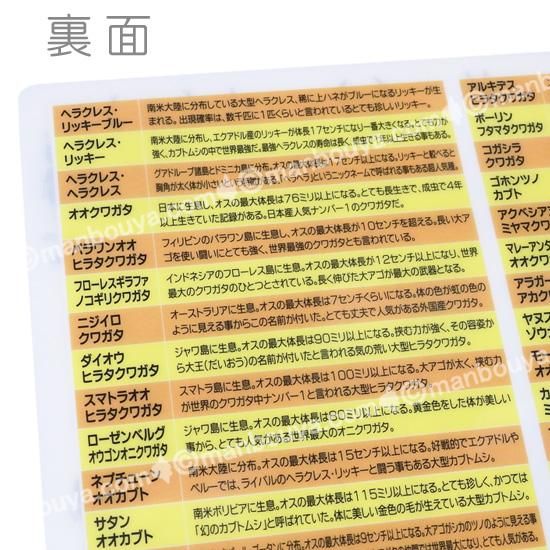 裏面
ヘラクレス・
リッキーブルー
南米大陸に分布している大型ヘラクレス、稀に上ハネがブルーになるリッキーが生
まれる。出現確率は、数千匹に1匹くらいと言われているとても珍しいリッキー。
ヘラクレス・
リッキー
南米大陸に分布し、エクアドル産のリッキーが体長17センチになり一番大きくなる。とても力が
強く、カブトムシの中で世界最強だ。最強ヘラクレスの寿命は長く、成虫で1年以上生きる事もある。
ヘラクレス・
ヘラクレス
グアドループ諸島とドミニカ島に分布。オスの最大体長は
オオクワガタ
日本に生息し、オスの最大体長は76ミリ以上になる。とても長生きで、成虫で4年
以上生きていた記録がある。日本産人気ナンバー1のクワガタだ。
パラワンオオ
ヒラタクワガタ
フィリピンのパラワン島に生息。オスの最大体長が10センチを超える。長い大ア
ゴを使い闘いにとても強く、世界最強のクワガタとも言われている。
フローレスギラファ
ノコギリクワガタ
インドネシアのフローレス島に生息。オスの最大体長が12センチ以上になり、世界
最大のクワガタのひとつとされている。長く伸びた大アゴが最大の武器となる。
ニジイロ
クワガタ
オーストラリアに生息。オスの最大体長は7センチくらいになる。体の色が虹の色の
ように見える事からこの名前が付いた。とても丈夫で人気がある外国産クワガタ。
ダイオウ
ヒラタクワガタ
ジャワ島に生息。オスの最大体長は90ミリ以上になる。挟む力が強く、その容姿か
ら大王(だいおう)の名前が付いたと言われる気の荒い大型ヒラタクワガタ。
スマトラオオ
ヒラタクワガタ
スマトラ島に生息。オスの最大体長は100ミリ以上になる。大アゴが太く、挟む力
が世界のクワガタ中ナンバー1と言われる大型ヒラタクワガタ。
ローゼンベルグ
オウゴンオニクワガタ
ジャワ島に生息。オスの最大体長は80ミリ以上になる。黄金色をした体が美しい
事から、とても人気がある世界最大のオニクワガタ。
ネプチューン
オオカブト
南米大陸に分布。オスの最大体長は15センチ以上になる。好戦的でエクアドルや
ペルーでは、ライバルのヘラクレス・リッキーと闘う事もある大型カブトムシ。
サタン
オオカブト
南米ボリビアに生息。オスの最大体長は115ミリ以上になる。とても珍しく、かつては
「幻のカブトムシ」と呼ばれていた。体に美しい金色の毛が生えている大型カブトムシ。
アルキデス
ヒラタクワガタ
ボーリン
フタマタクワガタ
コガシラ
クワガタ
ゴホンツノ
カブト
アクベシア
ミヤマクワ
マレーアン
オオクワ
アラガー
アカアシ
ヤヌス
ゾウ
@manbouya.com